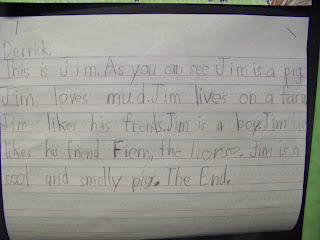 Derrick
This is Jim. As you can see Jim is a pig.
Jim loves mud. Jim lives on a farm
Jim likes his frends. Jim is a boy. Jim
likes his friend Fiem, the horse. Jim is a
cool and smelly pig. The End.